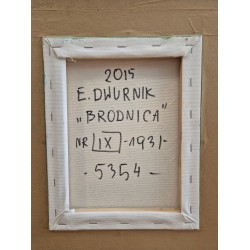 2015
E. DWURNIK
„BRODNICA”
NR IX -1931-
- 5354 -